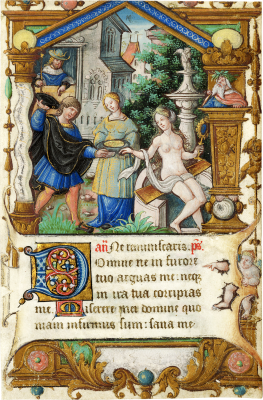 an̄. Ne reminiscaris. ps̄.
Domine ne in furore
tuo arguas me: neq
in ira tua corripias
me. Miserere mei domine quo
niam infirmus sum: sana me